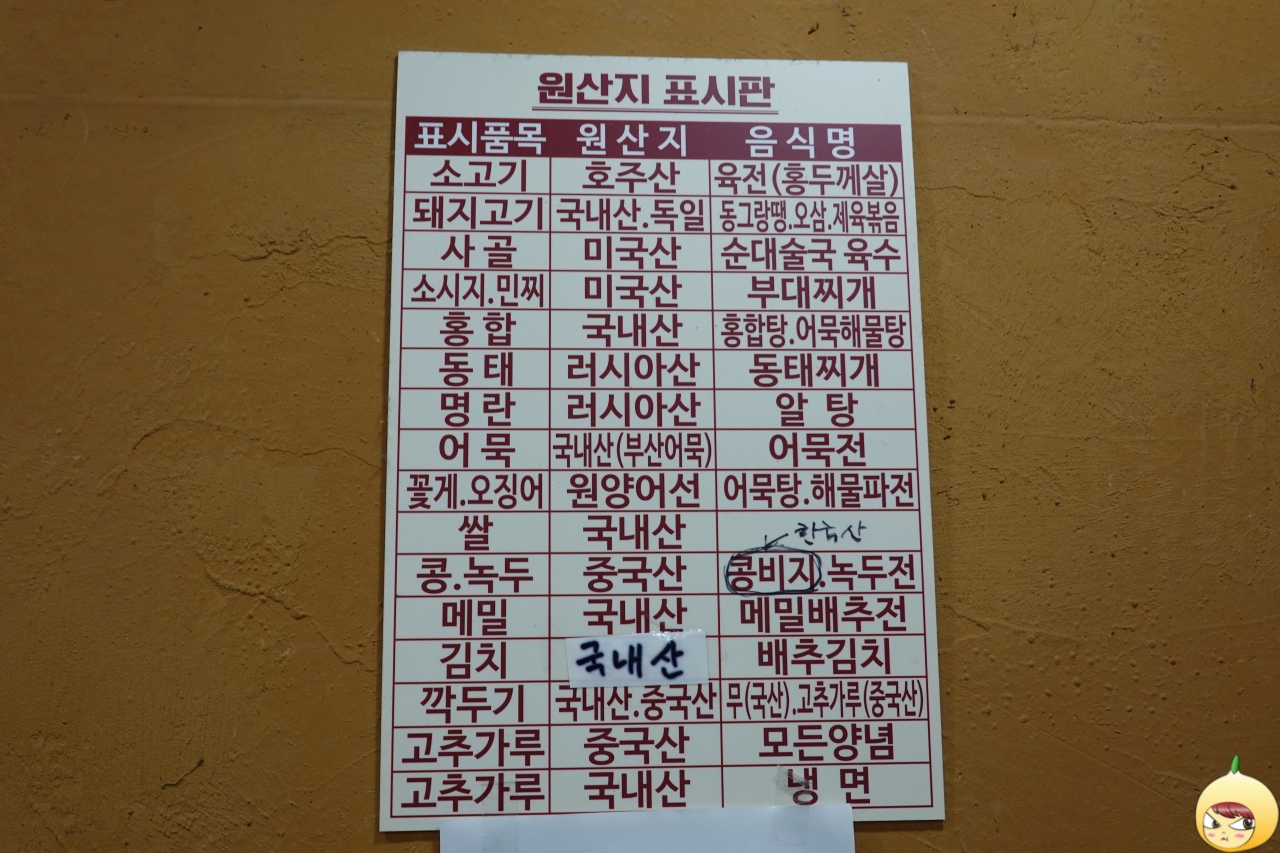 원산지 표시판
표시품목 원산지 음식명
소고기 호주산 육전(홍두께살)
돼지고기 국내산.독일 동그랑땡.오삼.제육볶음
사골 미국산 순대술국 육수
소시지.민찌 미국산 부대찌개
홍합 국내산 홍합탕.어묵해물탕
동태 러시아산 동태찌개
명란 러시아산 알탕
어묵 국내산(부산어묵) 어묵전
꽃게.오징어 원양어선 어묵탕.해물파전
쌀 국내산
한국산
콩.녹두 중국산 콩비지.녹두전
메밀 국내산 메밀배추전
김치 국내산 배추김치
깍두기 국내산.중국산 무(국산).고추가루(중국산)
고추가루 중국산 모든양념
고추가루 국내산 냉면